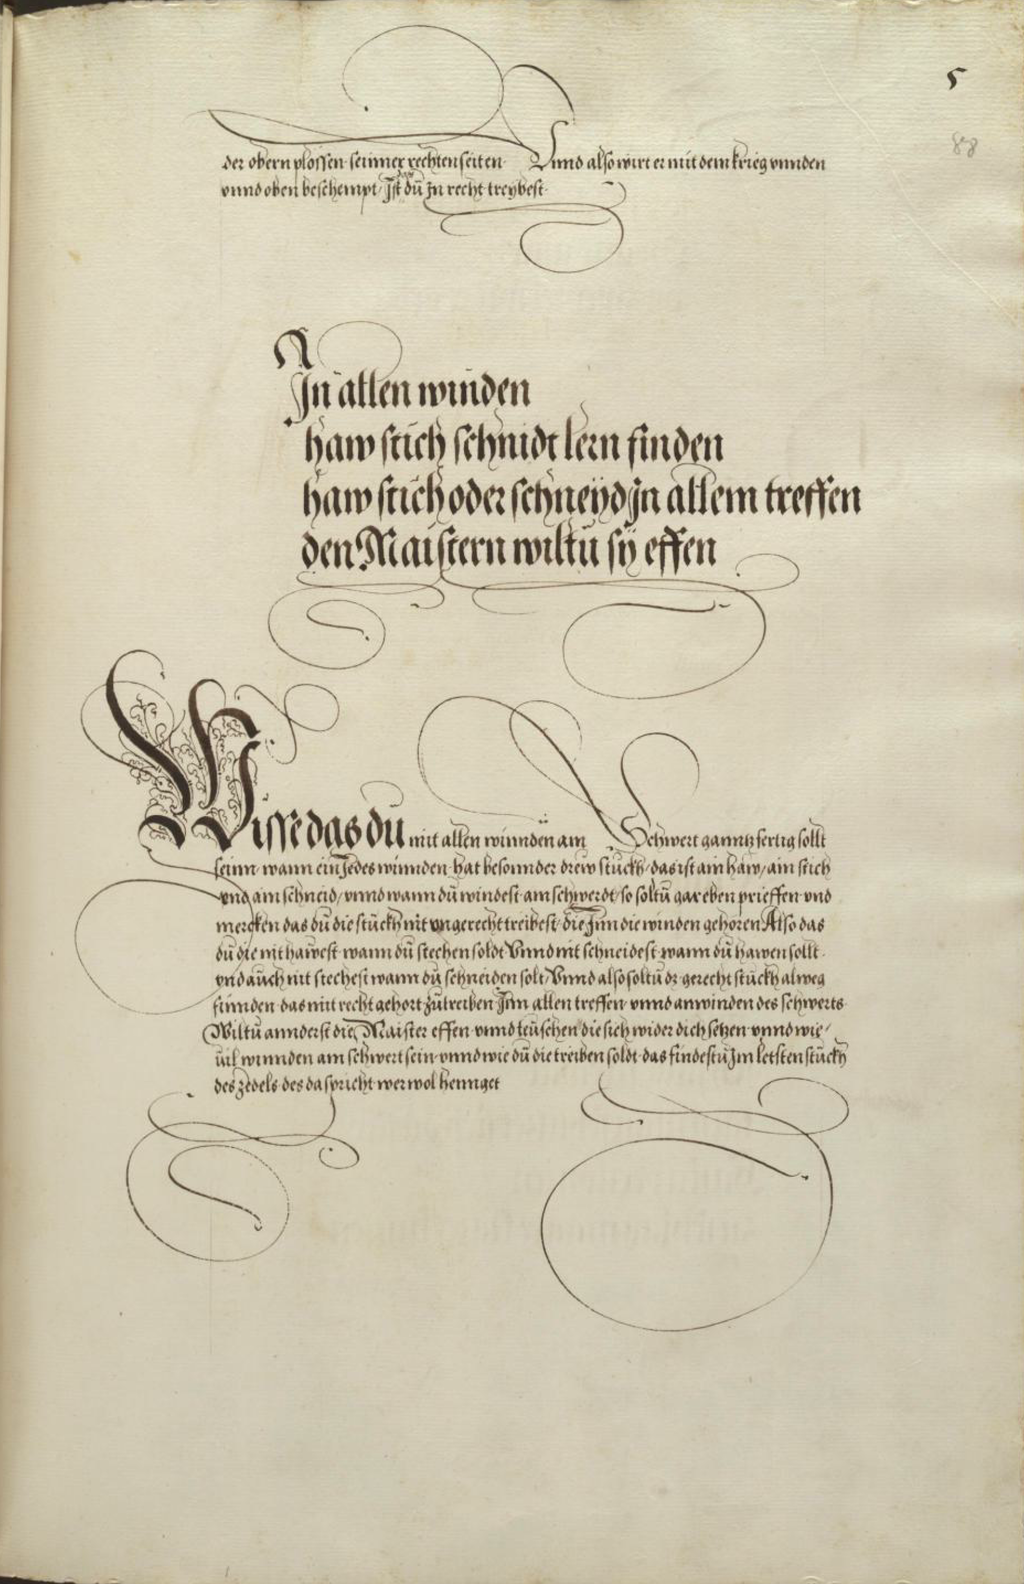 5
88
der obern plossen seinner rechten seiten Vnnd also wirt er mit dem krieg vnnden
vnnd oben beschempt Ist das dŭ In recht treybest
In allen winden
haw stich schnidt lern finden
haw stich oder schneyd Jn allem treffen
den Maistern wiltŭ sÿ effen
Wisse das dŭ mit allen winnden am Schwert ganntz fertig sollt
seinn wann ein Jedes winnden hat besonnder drew stuckh das ist ain haw / ain stich
vnd ain schnid / vnnd wann dŭ windest am schwerdt / so soltŭ gar eben prieffen vnd
mercken das dŭ die stŭckh nit vngerecht treibest die Jnn die winden gehoren Also das
dŭ die nit hawest wann dŭ stechen soldt Vnnd nit schneidest wann dŭ hawen sollt
vnd aŭch nit stechest wann dŭ schneiden solt / Vnnd also soltŭ dz gerecht stŭckh alweg
finnden das mit recht gehort zŭ treiben Jnn allen treffen vnnd anwinden des schwerts
Wiltŭ annderst die Maister effen vnnd teŭschen die sich wider dich setzen vnnd wie
uil winnden am schwert sein vnnd wie dŭ die treiben soldt das findestŭ Jm letsten stŭckh
des zedels des da spricht wer wol henget